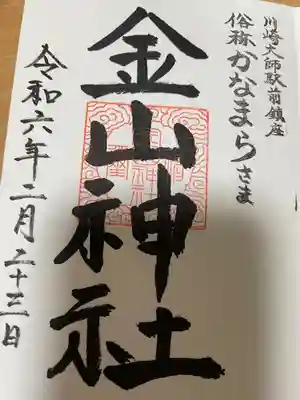 川崎大師駅前鎮座
俗称かなまらさま
金山神社
令和六年二月二十三日